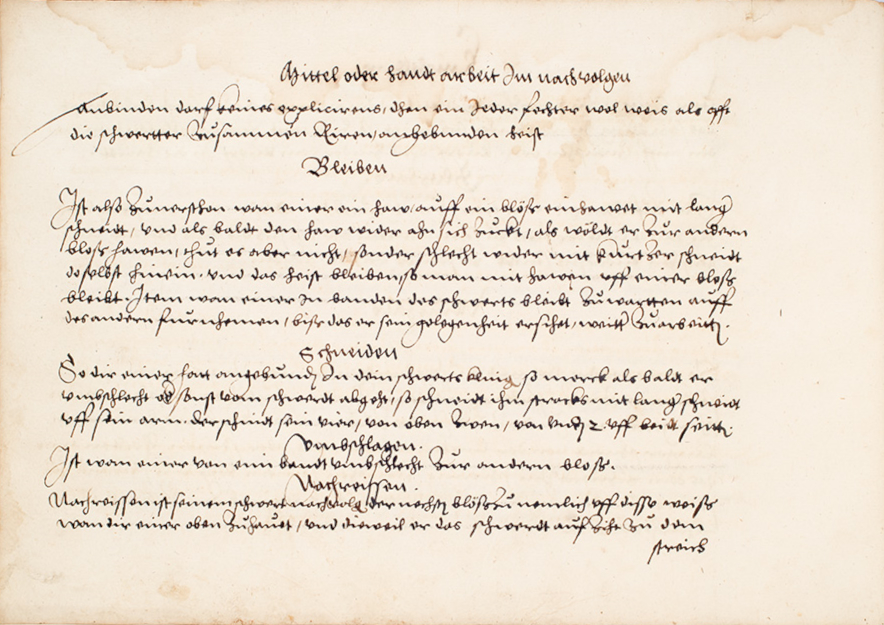 Mittel oder handt arbeit Im nachvolgen
Anbinden darf keines explicirens, dhen ein Jeder fechter wol weis als offt
die schwertter zusammen Riren, angebunden heist
Bleiben
Ist also zuuersthon wan einer ein haw, auff ein blöss einhawet mit lang
schneidt, vnd als baldt den haw wider ahn sich zuckt, als wöldt er zur andern
blöss hawen, thut es aber nicht, sonder schlecht wider mit kurtzer schneidt
doselbst hinein. vnd das heist bleiben, so man mit hawen vff einer blöss
bleibt. Item wan einer In banden des schwerts bleibt zuwartten auff
des andern furnhemen, biss das er sein gelegenheit ersihet, weitter zuarbeitten.
Schneiden
So dir einer hatt angebunden In dein schwerts kling so merck als baldt er
vmbschlecht od sonst vom schwerdt abgeht, so schneidt ihm stracks mit lang schneidt
vff sein arm. der schnidt sein vier, von oben zwen, von vnden 2. vff beide seitten.
Vmbschlagen.
Ist wan einer von eim bandt vmbschlecht zur andern blöss.
Nachreissen.
Nachreissen ist seinem schwert nachvolg der nechsten blöss zu nemlich vff disse weiss
wan dir einer oben zuhauet, vnd dieweil er das schwerdt auf ziht zu dem
streich